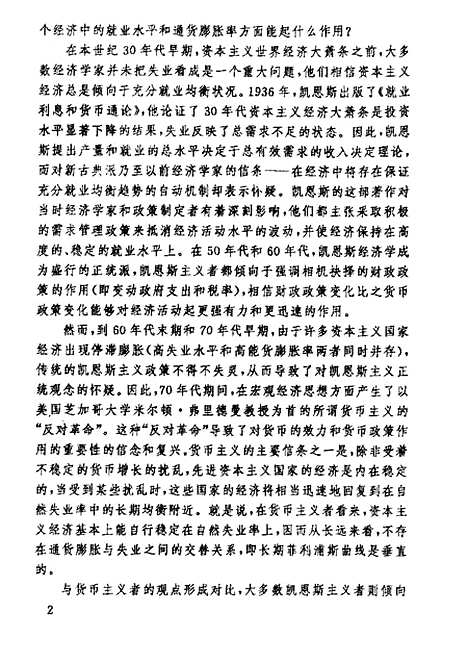 个经济中的就业水平和通货膨胀率方面能起什么作用?
在本世纪30年代早期,资本主义世界经济大萧条之前,大多
数经济学家并未把失业看成是一个重大问题,他们相信资本主义
经济总是倾向于充分就业均衡状况。1936年,凯恩斯出版了《就业
利息和货币通论》,他论证了30年代资本主义经济大萧条是投资
水平显著下降的结果,失业反映了总需求不足的状态。因此,凯恩
斯提出产量和就业的总水平决定于总有效需求的收入决定理论,
而对新古典派乃至以前经济学家的信条——在经济中将存在保证
充分就业均衡趋势的自动机制却表示怀疑。凯恩斯的这部著作对
当时经济学家和政策制定者有着深刻影响,他们都主张采取积极
的需求管理政策来抵消经济活动水平的波动,并使经济保持在高
度的、稳定的就业水平上。在50年代和60年代,凯恩斯经济学成
为盛行的正统派,凯恩斯主义者都倾向于强调相机抉择的财政政
策的作用(即变动政府支出和税率),相信财政政策变化比之货币
政策变化能够对经济活动起更强有力和更迅速的作用。
然而,到60年代末期和70年代早期,由于许多资本主义国家
经济出现停滞膨胀(高失业水平和高通货膨胀率两者同时并存),
传统的凯恩斯主义政策不得不失灵,从而导致了对凯恩斯主义正
统观念的怀疑。因此,70年代期间,在宏观经济思想方面产生了以
美国芝加哥大学米尔顿·弗里德曼教授为首的所谓货币主义的
“反对革命”。这种“反对革命”导致了对货币的效力和货币政策作
用的重要性的信念和复兴。货币主义的主要信条之一是,除非受着
不稳定的货币增长的扰乱,先进资本主义国家的经济是内在稳定
的,当受到某些扰乱时,这些国家的经济将相当迅速地回复到在自
然失业率中的长期均衡附近。就是说,在货币主义者看来,资本主
义经济基本上能自行稳定在自然失业率上,因而从长远来看,不存
在通货膨胀与失业之间的交替关系,即长期菲利浦斯曲线是垂直
的。
与货币主义者的观点形成对比,大多数凯恩斯主义者则倾向
2